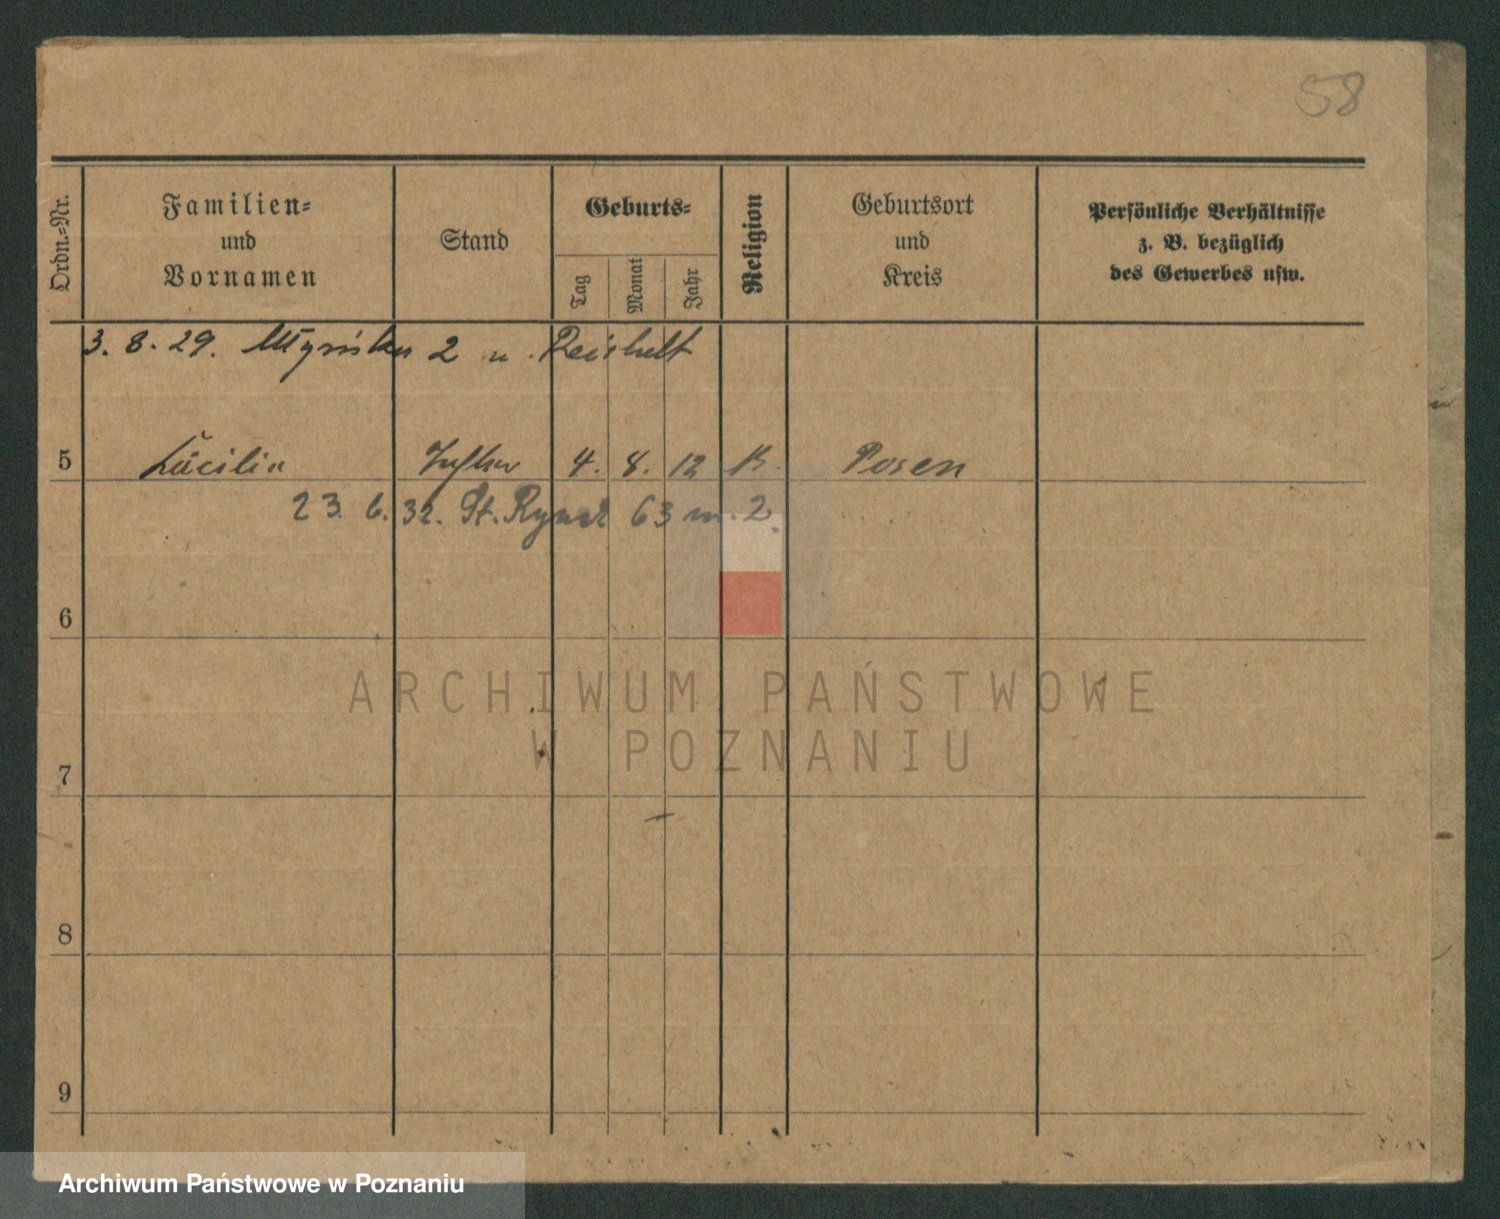 58
Ordn.-Nr.
Familien-
und
Vornamen
Stand
Geburts-
Tag
Monat
Jahr
Religion
Geburtsort
und
Kreis
Persönliche Verhältnisse
z. B. bezüglich
des Gewerbes usw.
3. 8. 29. 2 u. Reichelt
5 4. 8. 12 K. Posen
23. 6. 32. St. Rynek 63 m. 2.
6
ARCHIWUM PAŃSTWOWE
W POZNANIU
7
8
9
Archiwum Państwowe w Poznaniu